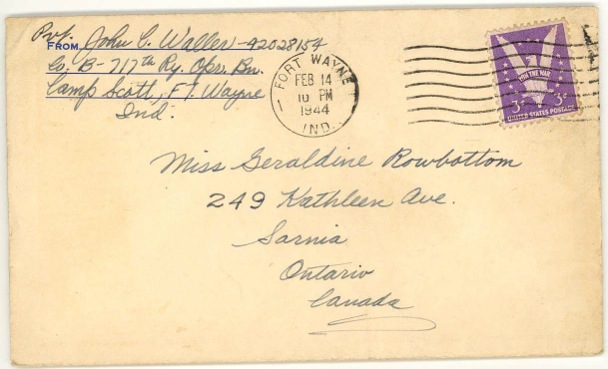 Pvt. John C. Waller - 42028154
FROM
Co. B - 717th Ry. Opr. Bn.
Camp Scott, Ft. Wayne
Ind.
FORT WAYNE
FEB 14
10 PM
1944
IND.
WIN THE WAR
3¢ 3¢
UNITED STATES POSTAGE
Miss Geraldine Rowbottom
249 Kathleen Ave.
Sarnia
Ontario
Canada